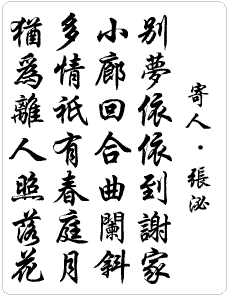 寄人·張泌
別夢依依到謝家
小廊回合曲闌斜
多情祇有春庭月
猶為離人照落花